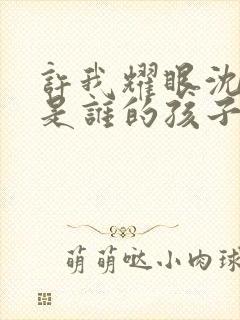 許我耀眼沈
是誰的孩子
萌萌哒小肉球